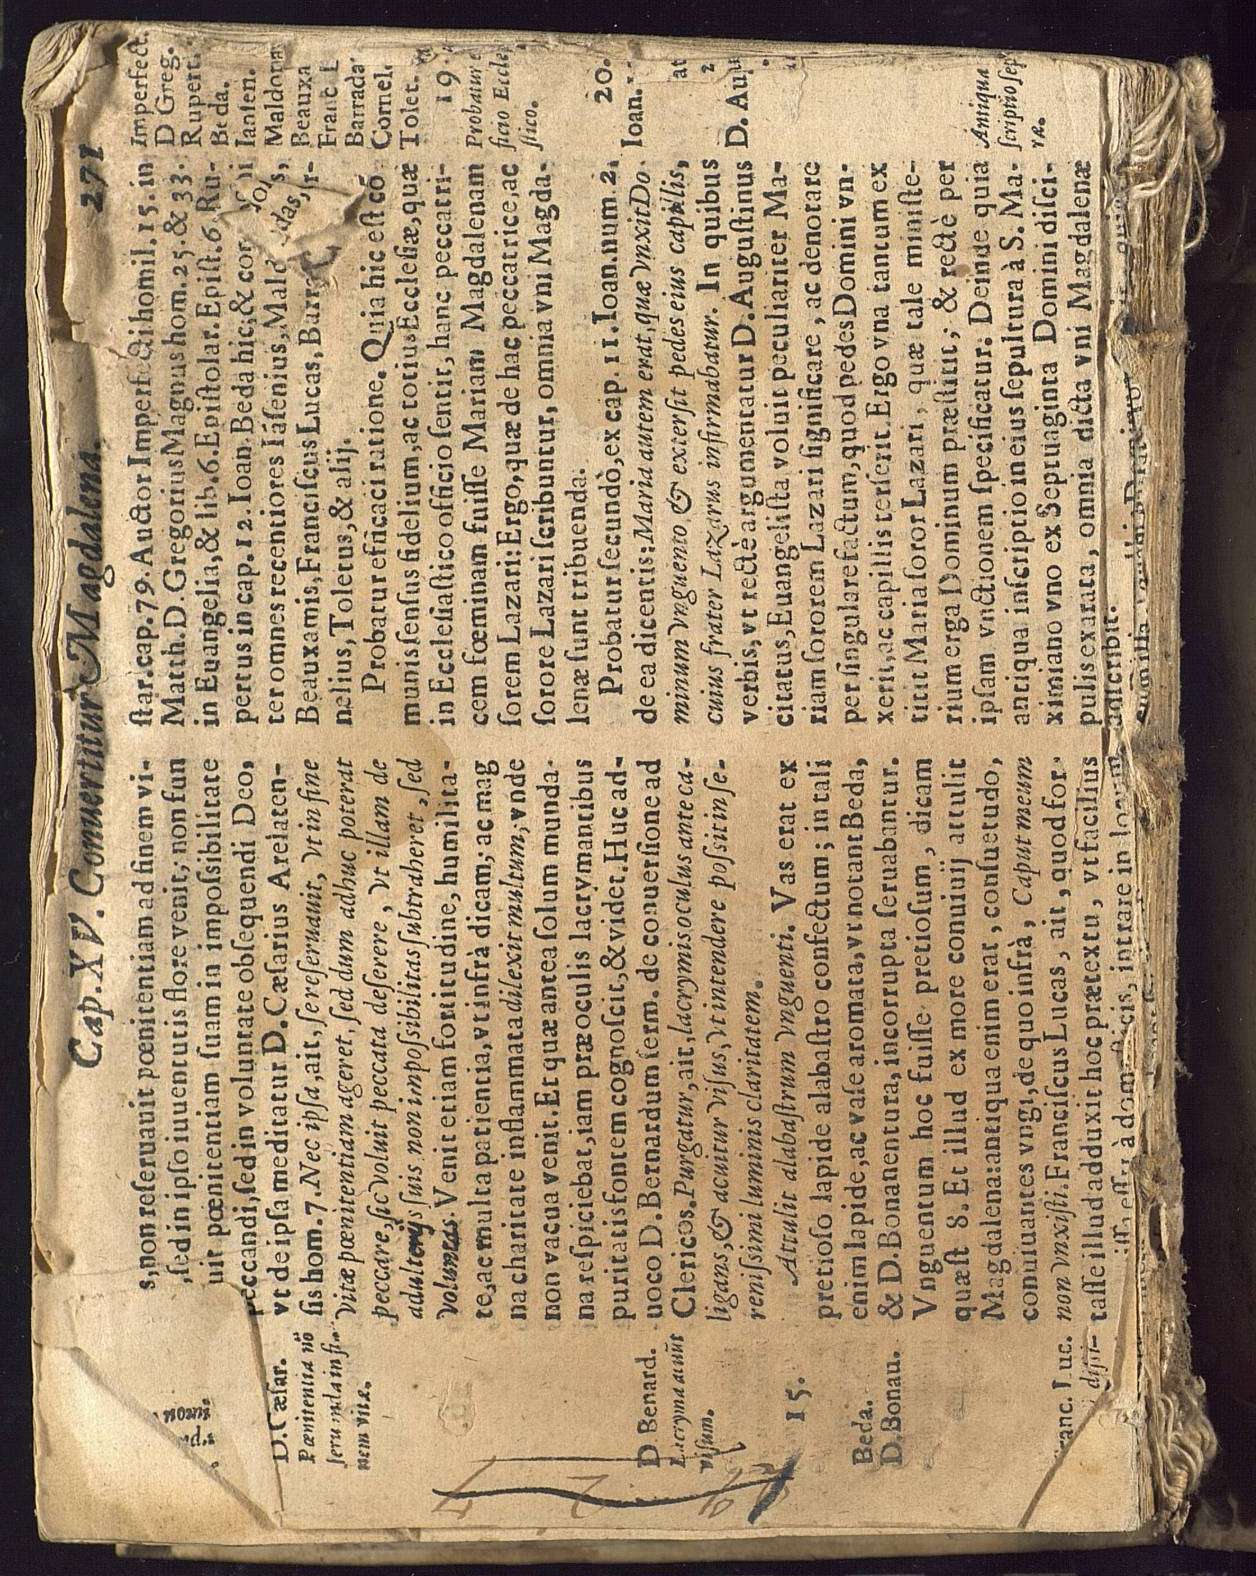 Cap. XV. Conuertitur Magdalena. 271
s, non reseruauit pœnitentiam ad finem vi-
, sed in ipso iuuentutis flore venit; non sun
uit pœnitentiam suam in impossibilitate
peccandi, sed in voluntate obsequendi Deo,
vt de ipsa meditatur D. Cæsarius Arelaten-
sis hom. 7. Nec ipsa, ait, se reseruauit, vt in fine
vitæ pœnitentiam ageret, sed dum adhuc poterat
peccare, sic voluit peccata deserere, vt illam de
adulterijs suis non impossibilitas subtraheret, sed
voluntas. Venit etiam fortitudine, humilita-
te, ac multa patientia, vt infrà dicam; ac mag
na charitate inflammata dilexit multum; vnde
non vacua venit. Et quæ antea solum munda-
na respiciebat, iam præ oculis lacrymantibus
puritatis fontem cognoscit, & videt. Huc ad-
uoco D. Bernardum serm. de conuersione ad
Clericos. Purgatur, ait, lacrymis oculus ante ca-
ligans, & acuitur visus, vt intendere possit in se-
renissimi luminis claritatem.
Attulit alabastrum vnguenti. Vas erat ex
pretioso lapide alabastro confectum; in tali
enim lapide, ac vase aromata, vt notant Beda,
& D. Bonauentura, incorrupta seruabantur.
Vnguentum hoc fuisse pretiosum, dicam
quæst 8. Et illud ex more conuiuij attulit
Magdalena: antiqua enim erat, consuetudo,
conuiuantes vngi, de quo infrà, Caput meum
non vnxisti. Franciscus Lucas, ait, quod for-
tasse illud adduxit hoc prætextu, vt facilius
à domesticis, intrare in locum
D. Cæsar.
Pœnitentia nō
seruanda in fi-
nem vitæ.
D. Benard.
Lacryma acuūt
visum.
15.
Beda.
D. Bonau.
Franc. Luc.
star. cap. 79. Auctor Imperfecti homil. 15. in
Matth. D. Gregorius Magnus hom. 25. & 33.
in Euangelia, & lib. 6. Epistolar. Epist. 6. Ru-
pertus in cap. 12. Ioan. Beda hic, & cor
ter omnes recentiores Iāsenius, Mald
Beauxamis, Franciscus Lucas, Barr
nelius, Toletus, & alij.
Probatur efficaci ratione. Quia hic est cō
munis sensus fidelium, ac totius Ecclesiæ, quæ
in Ecclesiastico officio sentit, hanc peccatri-
cem fœminam fuisse Mariam Magdalenam
sorem Lazari: Ergo, quæ de hac peccatrice, ac
sorore Lazari scribuntur, omnia vni Magda-
lenæ sunt tribuenda.
Probatur secundò, ex cap. 11. Ioan. num. 2.
de ea dicentis: Maria autem erat, quæ vnxit Do-
minum vnguento & extersit pedes eius capillis,
cuius frater Lazarus infirmabatur. In quibus
verbis, vt rectè argumentatur D. Augustinus
citatus, Euangelista voluit peculiariter Ma-
riam sororem Lazari significare, ac denotare
per singulare factum, quod pedes Domini vn-
xerit, ac capillis terserit. Ergo vna tantum ex
titit Maria soror Lazari, quæ tale ministe-
rium erga Dominum præstitit; & rectè per
ipsam vnctionem specificatur. Deinde quia
antiqua inscriptio in eius sepultura à S. Ma-
ximiano vno ex Septuaginta Domini disci-
pulis exarata, omnia dicta vni Magdalenæ
adscribit.
Imperfect.
D Greg.
Rupert.
Beda.
Iansen.
Maldona
Beauxa
Franc. L
Barrada
Cornel.
Tolet.
19
Probatur e
ficio Eccle
stico.
20.
Ioan.
D. Au
Antiqua
scriptio sep
ræ.